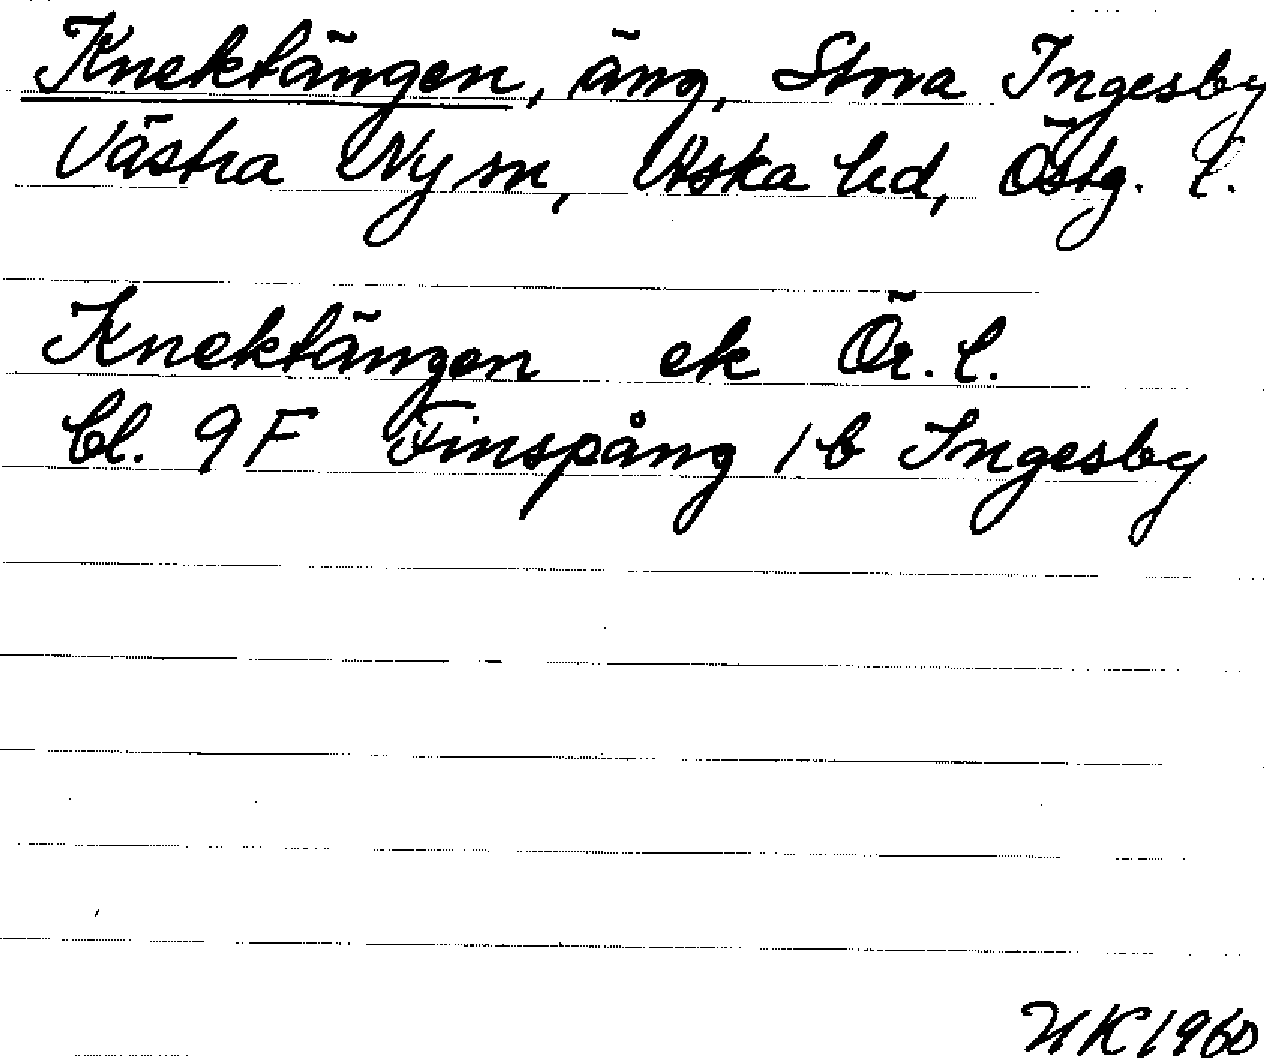 Knektängen, äng, Stora Ingesby
Västra Ny sn, Aska hd, Östg. l.
Knektängen ek Ör. l.
bl. 9F Finspång 1 b Ingesby
HK 1960